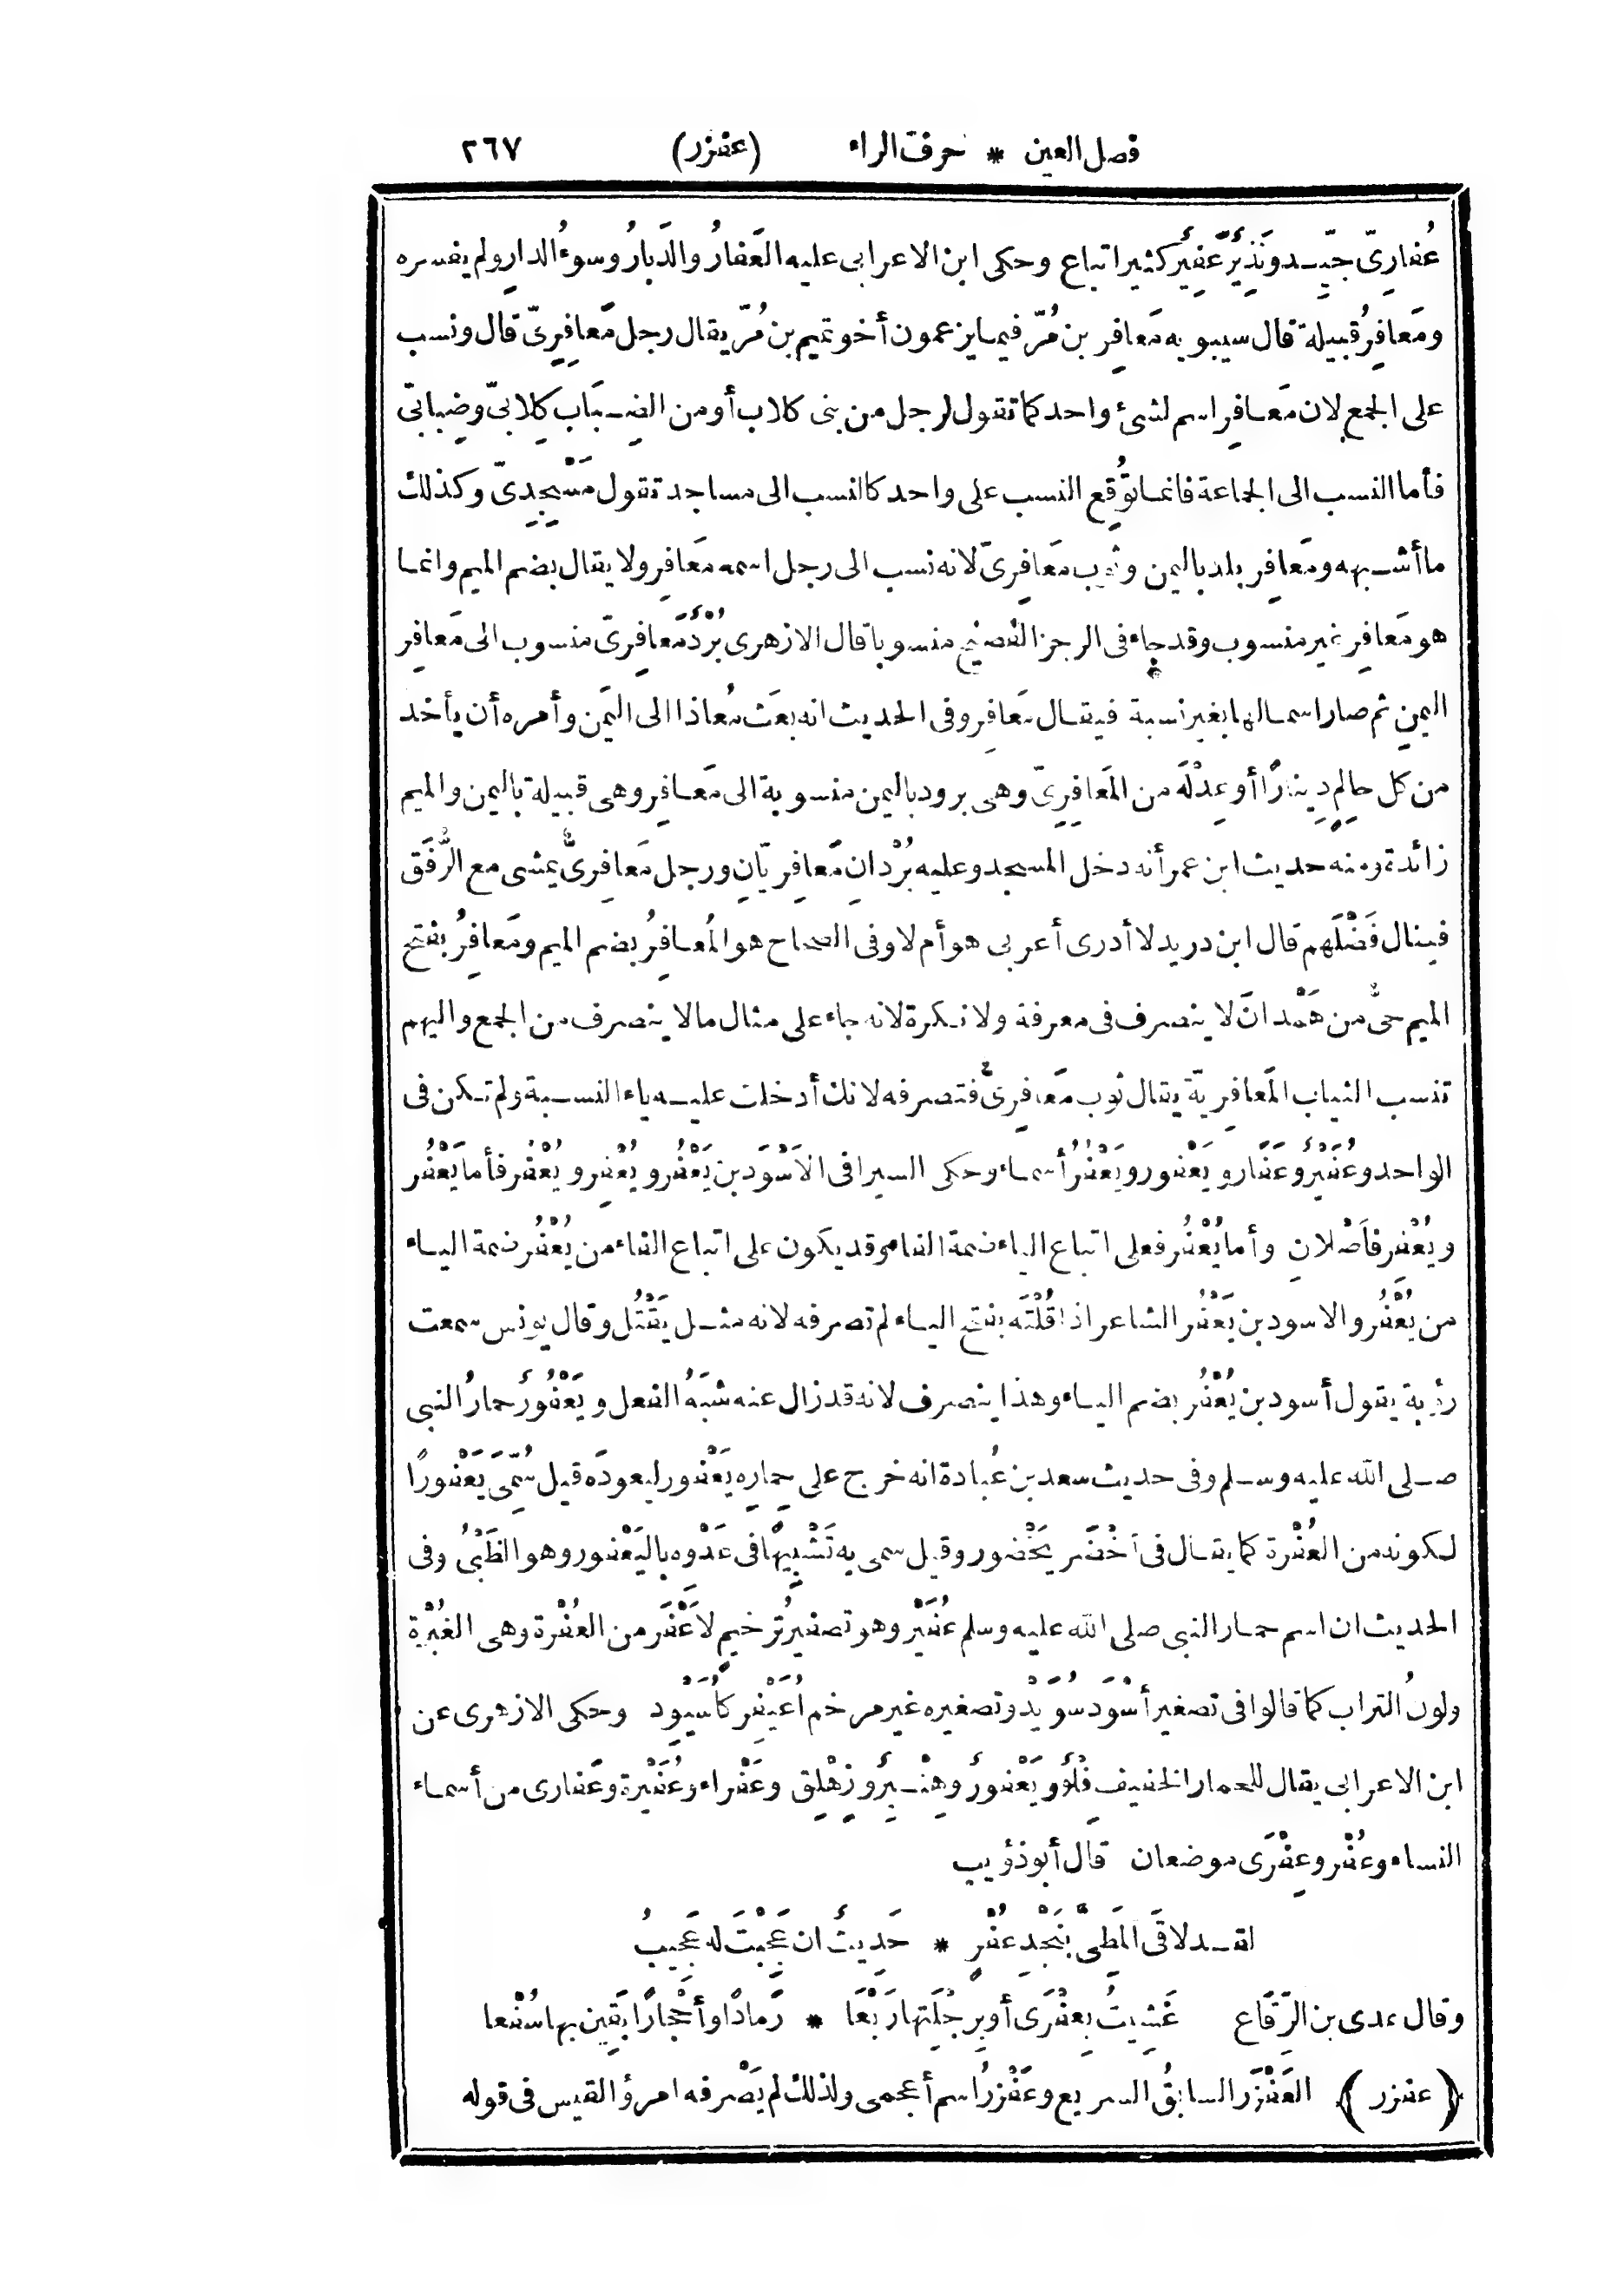 فصل العين * حرف الراء (عفزر) ٢٦٧
عُفارِىّ جيِّد ونَذِيرٌ عَفِيرٌ كثير اتباع وحكى ابن الاعرابى عليه العَفارُ والدَبارُ وسوءُ الدارِ ولم يفسره
ومَعافِرُ قبيلة قال سيبويه مَعافِر بن مُرّ فيما يزعمون أخو تميم بن مُرّ يقال رجل مَعافِرِىّ قال ونسب
على الجمع لان مَعافِر اسم لشئ واحد كما تقول لرجل من بنى كلاب أو من الضِباب كِلابىّ وضِبابىّ
فأما النسب الى الجماعة فانما تُوقِع النسب على واحد كالنسب الى مساجد تقول مَسْجِدِىّ وكذلك
ما أشبهه ومَعافِر بلد باليمن وثوب مَعافِرِىّ لانه نسب الى رجل اسمه مَعافِر ولا يقال بضم الميم وانما
هو مَعافِر غير منسوب وقد جاء فى الرجز الفصيح منسوبا قال الازهرى بُرْدٌ مَعافِرِىّ منسوب الى مَعافِر
اليمنِ ثم صار اسما لها بغير نسبة فيقال مَعافِر وفى الحديث انه بعَث مُعاذا الى اليَمن وأمره أن يأخذ
من كل حالِمٍ دِينارًا أو عِدْلَه من المَعافِرِىّ وهى برود باليمن منسوبة الى مَعافِر وهى قبيلة باليمن والميم
زائدة ومنه حديث ابن عمر أنه دخل المسجد وعليه بُرْدانِ مَعافِرِيّانِ ورجل مَعافِرىٌّ يمشى مع الرُّفَق
فينال فَضْلَهم قال ابن دريد لا أدرى أعربى هو أم لا وفى الصحاح هو المُعافِرُ بضم الميم ومَعافِرُ بفتح
الميم حىٌّ من هَمْدانَ لا ينصرف فى معرفة ولا نكرة لانه جاء على مثال ما لا ينصرف من الجمع واليهم
تنسب الثياب المَعافِرِيّة يقال ثوب مَعافِرِىٌّ فتصرفه لانك أدخلت عليه ياء النسبة ولم تكن فى
الواحد وعُفَيْرٌ وعَفّار ويَعْفور ويَعْفُرُ أسماء وحكى السيرافى الاَسْوَد بن يَعْفُر ويُعْفِر ويُعْفُر فأما يَعْفُر
ويُعْفِر فأَصْلانِ وأما يُعْفُر فعلى اتباع الياء ضمة الفاء وقد يكون على اتباع الفاء من يُعْفُر ضمة الياء
من يُعْفُر والاسود بن يَعْفُر الشاعر اذا قُلْتَه بفتح الياء لم تصرفه لانه مثل يَقْتُل وقال يونس سمعت
رؤبة يقول أسود بن يُعْفُر بضم الياء وهذا ينصرف لانه قد زال عنه شَبَهُ الفعل ويَعْفُورٌ حمارُ النبى
صلى الله عليه وسلم وفى حديث سعد بن عُبادة انه خرج على حِمارِه يَعْفور ليعودَه قيل سُمِّىَ يَعْفورًا
لكونه من العُفْرة كما يقال فى أخْضَر يَخْضور وقيل سمى به تَشْبِيهًا فى عَدْوِه باليَعْفور وهو الظَبْىُ وفى
الحديث ان اسم حمار النبى صلى الله عليه وسلم عُفَيْر وهو تصغيرُ ترخيمٍ لاَعْفَر من العُفْرة وهى الغُبْرة
ولونُ التراب كما قالوا فى تصغير أسْوَد سُوَيْد وتصغيره غير مرخم أُعَيْفِر كأُسَيْوِد وحكى الازهرى عن
ابن الاعرابى يقال للحمار الخفيف فِلْوٌ ويَعْفورٌ وهِنْبِرٌ وزِهْلِق وعَفْراء وعُفَيْرة وعَفارى من أسماء
النساء وعُفْر وعِفْرَى موضعان قال أبو ذؤيب
لقد لاقَى المَطِىَّ بنَجْدِ عُفْرٍ * حَدِيثٌ ان عَجِبْتَ له عَجِيبُ
وقال عدى بن الرِّقَاع غَشِيتُ بِعِفْرَى أو بِرِجْلَتِها رَبْعَا * رَمادًا وأحْجارًا بَقِينَ بها سُفْعا
(عفزر) العَفْزَر السابقُ السريع وعَفْزَرُ اسم أعجمى ولذلك لم يَصْرفه امرؤ القيس فى قوله